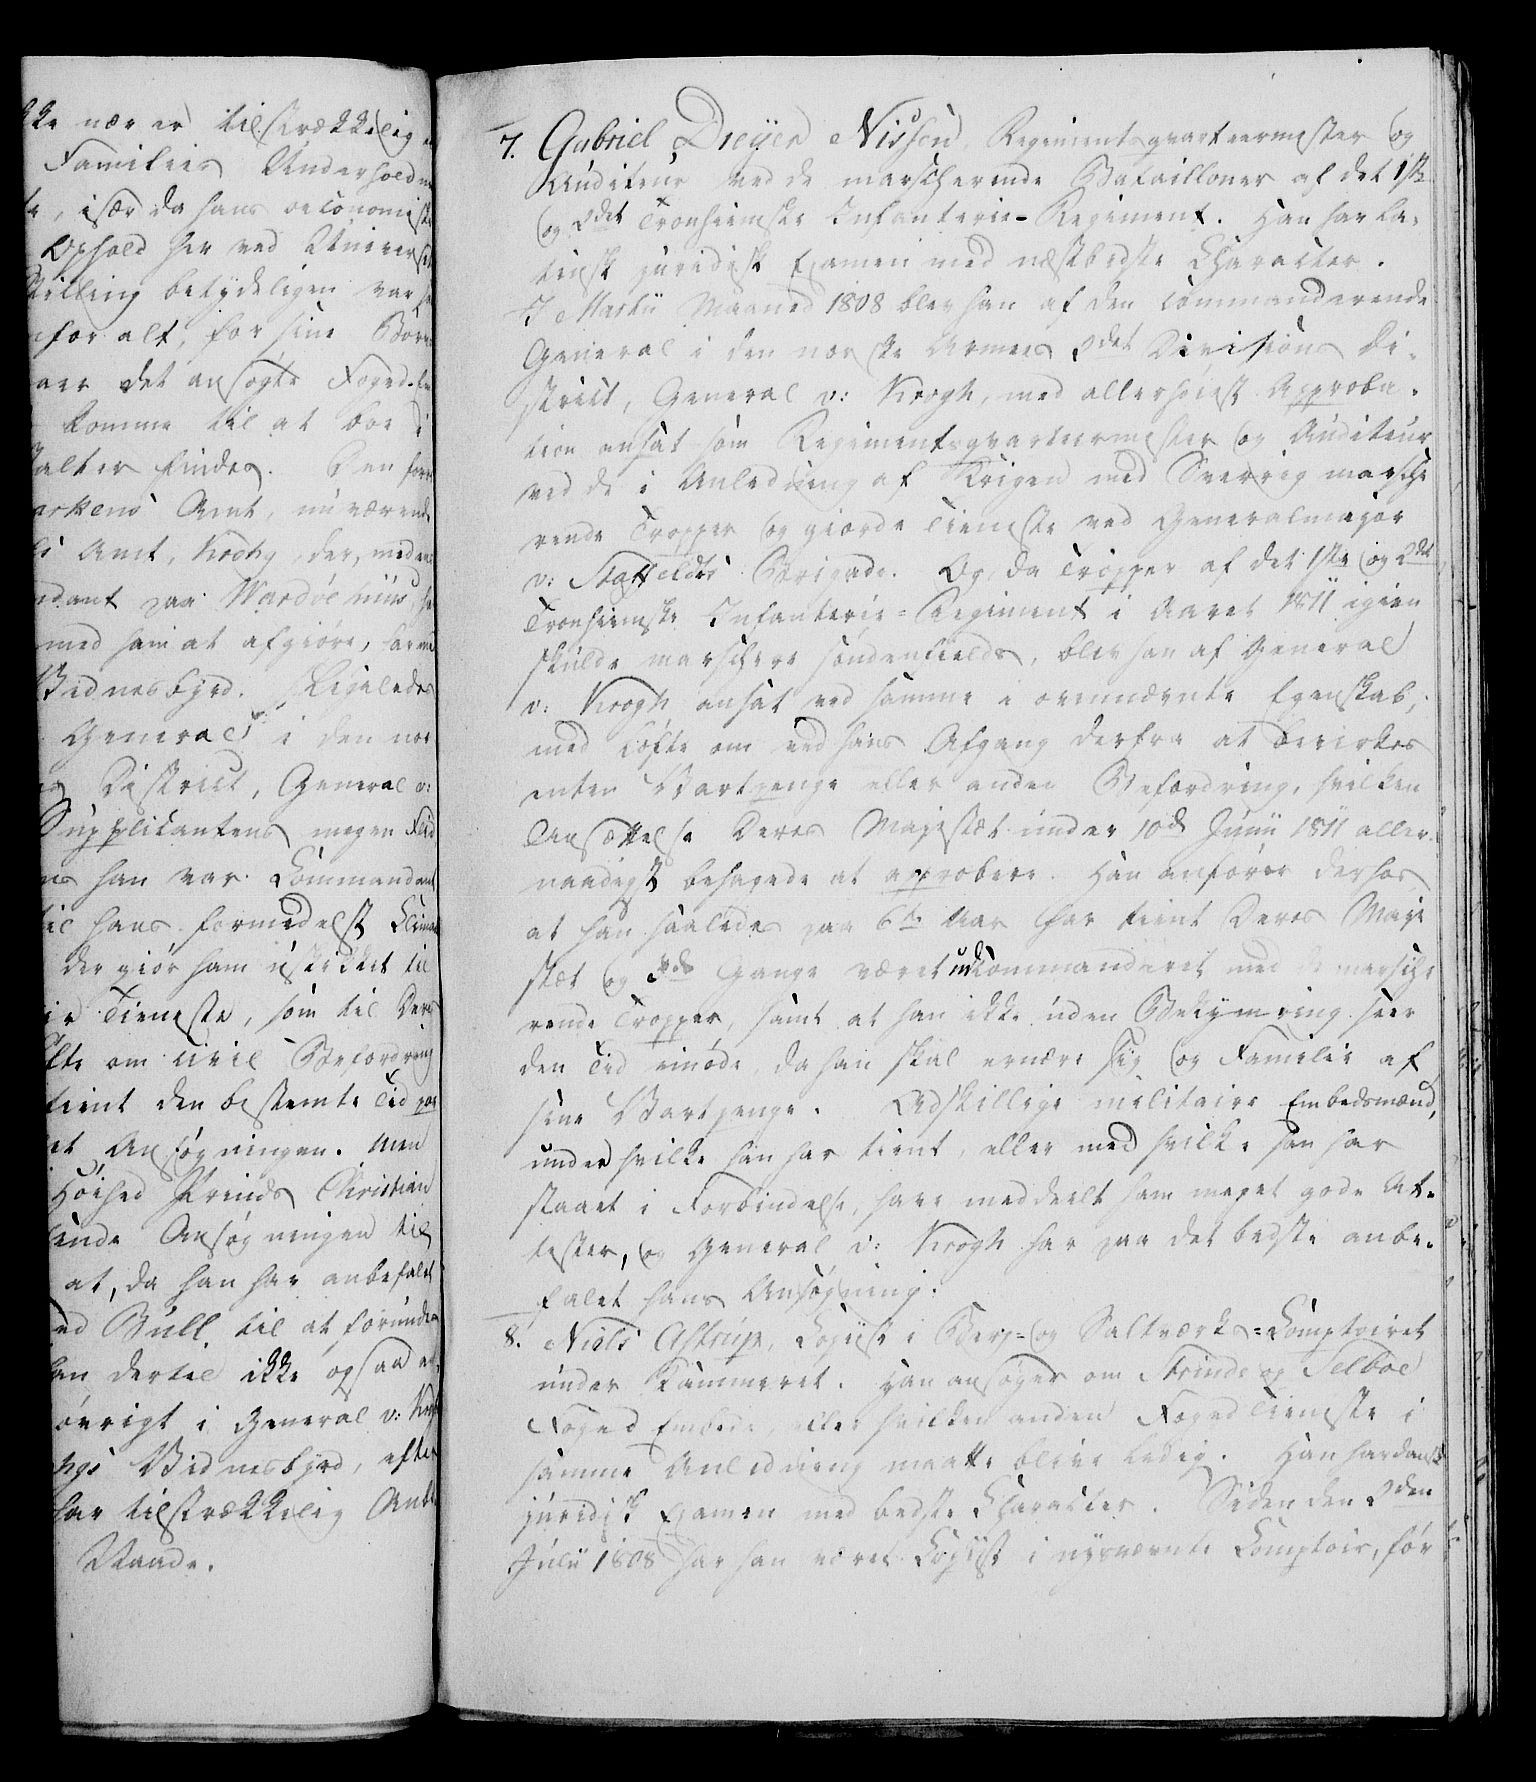 kke nær er tilstrækkelig
Families Underhold
især da hans oeconomiske
Ophold her ved Univers
stilling betydeligen var
for alt, for sine Børn
det ansøgte Foged
komme til at boe i
findes. Den
arkens Amt, nuværende
Amt, Krohg, der, med
paa Wardöehuus,
med ham at afgiöre,
Vidnesbyrd. Ligeledes
General i den nor
District, General v:
Supplikantens megen Flid
han var Commandant
til hans formedelst
der giör ham uskikket til
Tieneste, som til Deres
om civil Befordring
tient den bestemte Tid
Ansøgningen. Men
Höihed Prinds Christian
Ansøgningen til
at, da han har anbefalet
Bull til at forundes
dertil ikke ogsaa
övrigt i General v: Krogh
Vidnesbyrd, efter
har tilstrækkelig
Raade.
7. Gabriel Dreyer Nissen, Regimentsqvarteermester og
Auditeur ved de marscherende Batailloner af det 1ste
og 2det Tronhiemske Infanterie-Regiment. Han har la-
tinsk juridisk Examen med næstbedste Character.
I Martii Maaned 1808 blev han af den commanderende
General i den norske Armees 2det Divisions Di-
strict, General v: Krogh, med allerhöiest Approba-
tion ansat som Regimentsqvarteermester og Auditeur
ved de i Anledning af Krigen med Sverrig marsche
rende Tropper og giorde Tieneste ved Generalmajor
v: Staffeldts Brigade. Og, da Tropper af det 1ste og 2det
Tronhiemske Infanterie-Regiment i Aaret 1811 igien
skulde marschere söndenfields, blev han af General
v: Krogh ansat ved samme i ovennævnte Egenskab,
med Löfte om ved hans Afgang derfra at bevirkes
enten Vartpenge eller anden Befordring, hvilken
Ansættelse Deres Majestæt under 10de Junii 1811 aller-
naadigst behagede at approbere. Han anförer derhos,
at han saaledes paa 6te Aar har tient Deres Maje
stæt og Gange været udcommanderet med de marsche
rende Tropper, samt at han ikke uden Bekymring seer
den Tid imöde, da han skal ernære sig og Familie af
sine Vartpenge. Adskillige militaire Embedsmænd,
under hvilke han har tient, eller med hvilke han har
staaet i Forbindelse, have meddeelt ham meget gode At-
tester, og General v: Krogh har paa det bedste anbe-
falet hans Ansögning.
8. Niels Astrup, Copiist i Berg- og Saltværks-Comptoiret
under Kammeret. Han ansöger om Strinde og Selboe
Foged Embede, eller hvilken anden Foged Tieneste i
samme Anledning maatte blive ledig. Han har dansk
juridisk Examen med bedste Character. Siden den 2den
Julii 1808 har han været Copiist i nysnævnte Comptoir, før